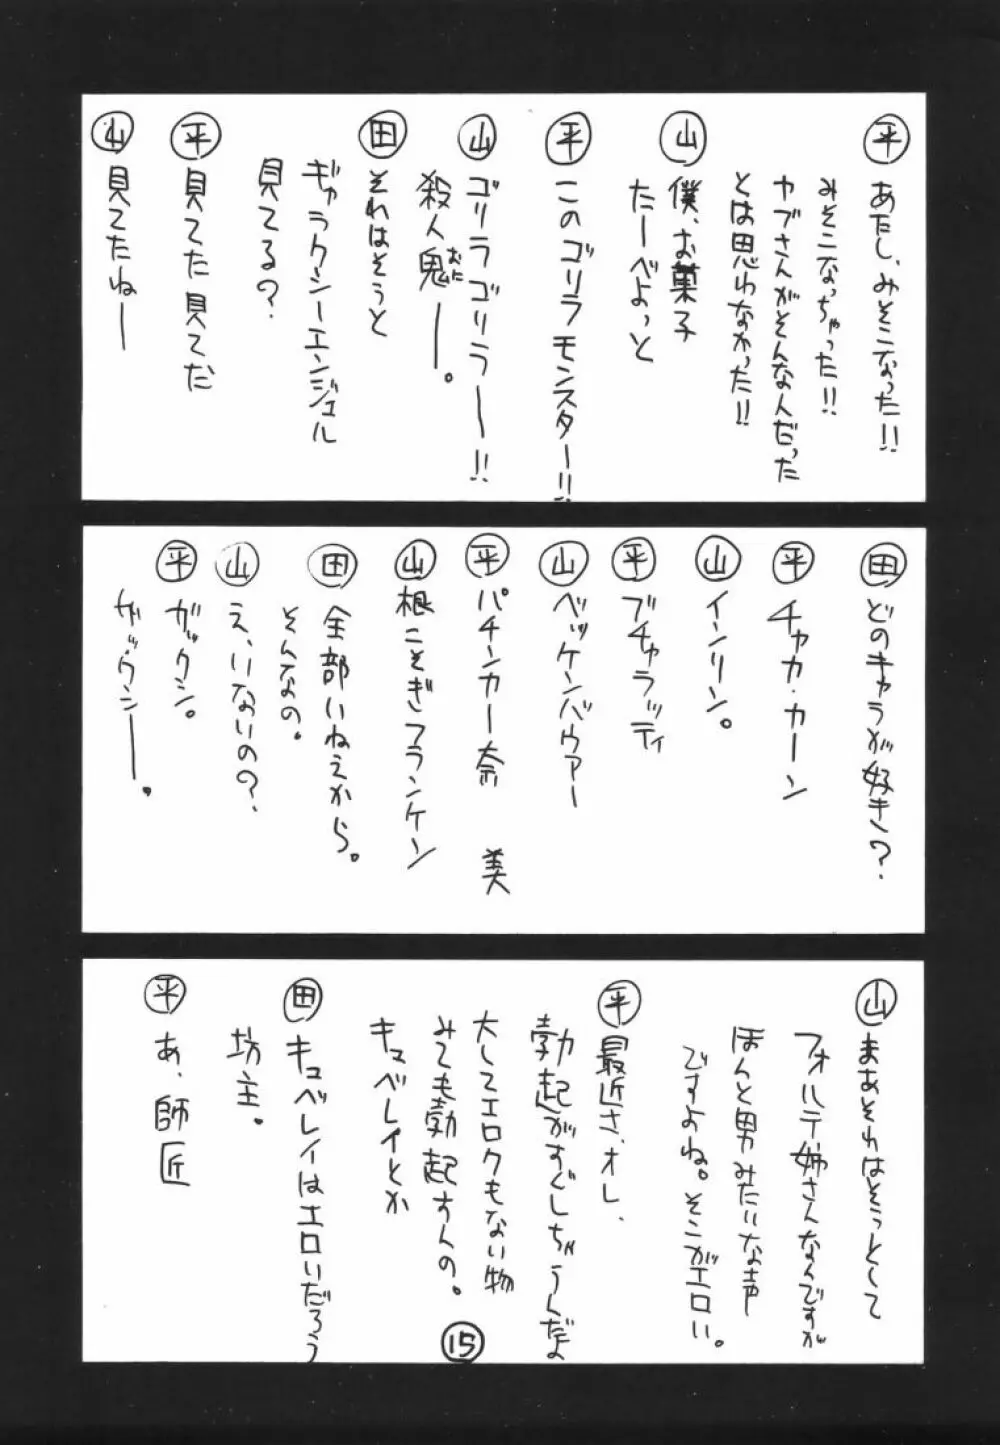 平 あたし、みそこなった!!
みそこなっちゃった!!
ヤブさんがそんな人だった
とは思わなかった!!
山 僕、お菓子
たーべよっと
平 このゴリラモンスター!!
山 ゴリラゴリラー!!
殺人鬼ー。
おに
田 それはそうと
ギャラクシーエンジェル
見てる?
平 見てた見てた
山 見てたねー
田 どのキャラが好き?
平 チャカ・カーン
山 インリン。
平 ブチャラッティ
山 ベッケンバウアー
平 パチンカー奈美
山 根こそぎフランケン
田 全部いねえから。
そんなの。
山 え、いないの?
平 ガクシ。
ガックシー。
山 まあそれはそうとして
フォルテ姉さんなんですが
ほんと男みたいな声
ですよね。そこがエロい。
平 最近さ、オレ、
勃起がすぐしちゃうんだよ
大してエロクもない物
みても勃起すんの。
キュベレイとか
田 キュベレイはエロいだろう
坊主。
平 あ、師匠
15